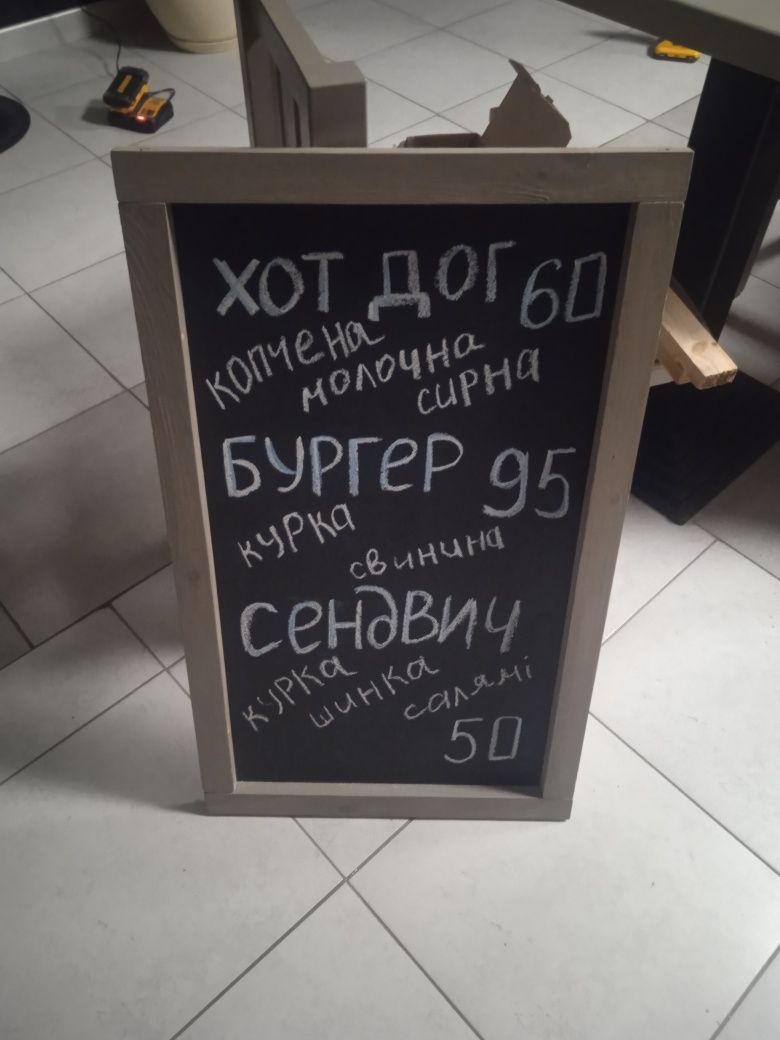 ХОТ ДОГ 60
копчена молочна сирна
БУРГЕР 95
курка свинина
СЕНДВИЧ
курка шинка салямі
50